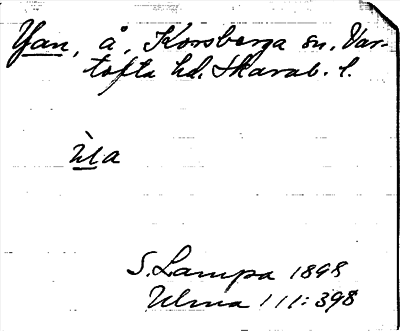 Yan, å, Korsberga sn. Var-
tofta hd. Skarab. l.
S. Lampa 1898
Ulma 111:398